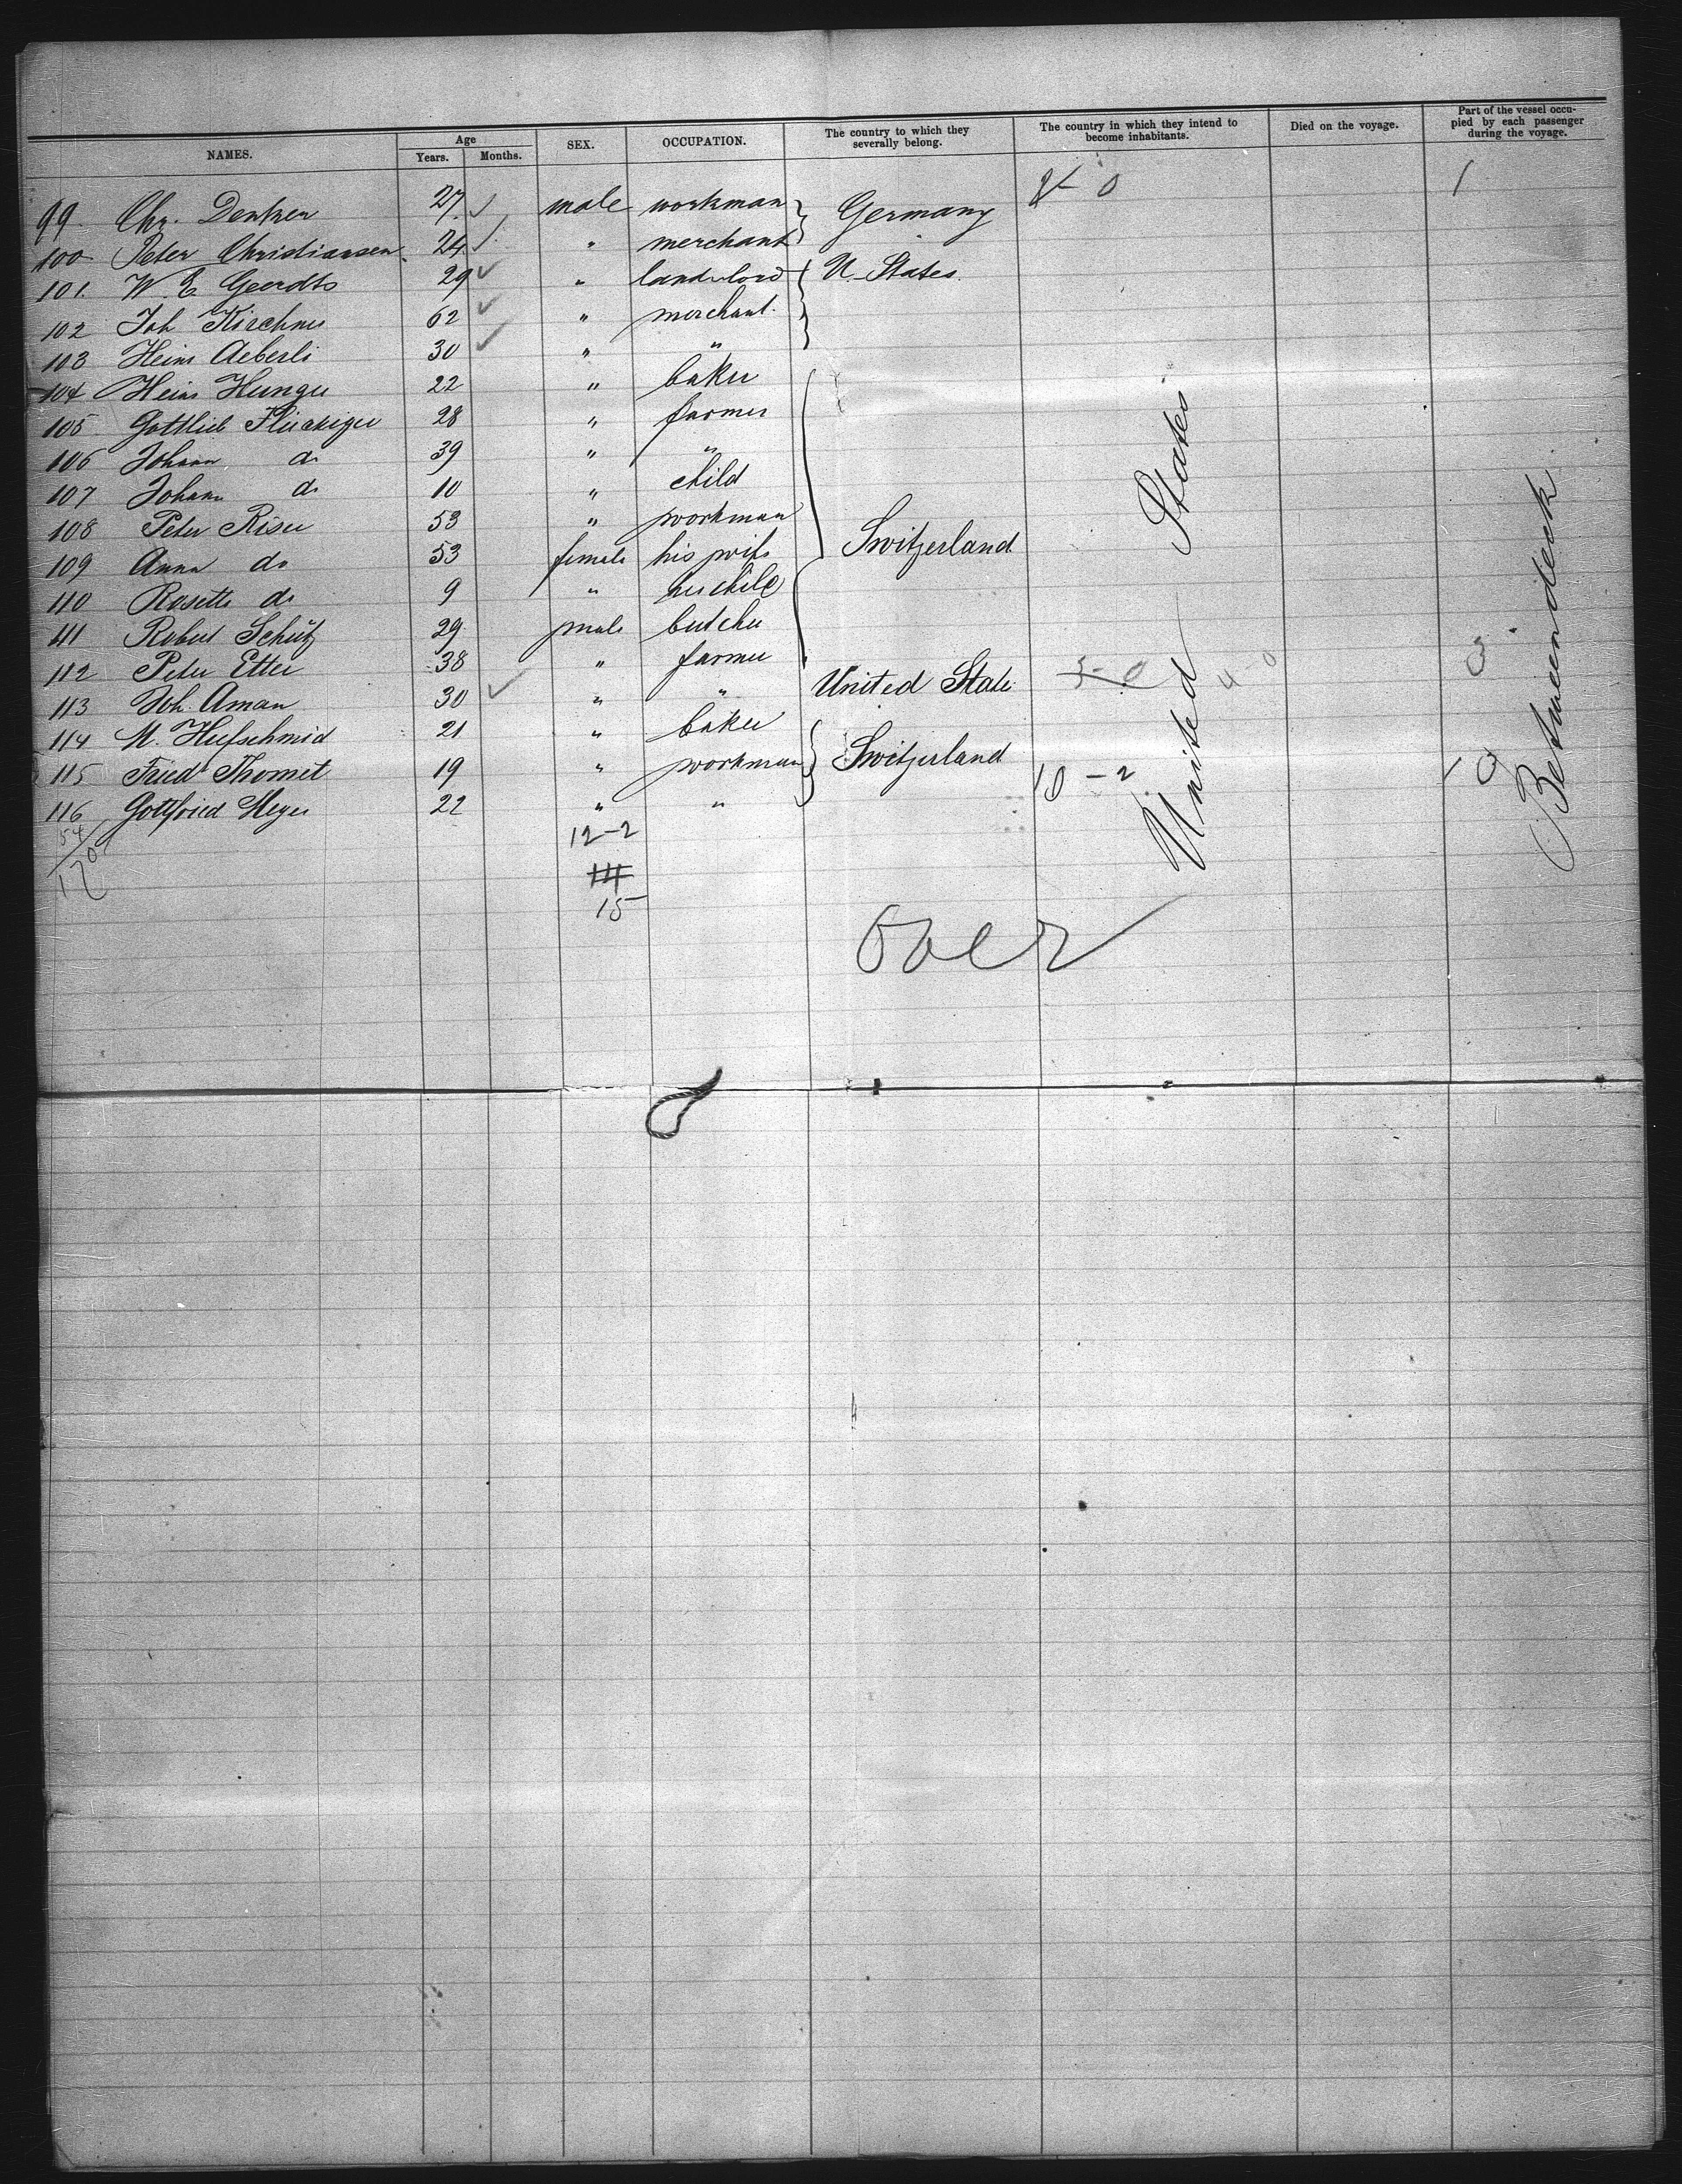 NAMES. Age Years. Months. SEX. OCCUPATION. The country to which they severally belong. The country in which they intend to become inhabitants. Died on the voyage. Part of the vessel occupied by each passenger during the voyage.
99. Chr. Dentzer 27 ✓ male workman Germany 2-0 1
100. Peter Christiansen 24 ✓ " merchant
101. W. E. Geerdts 29 ✓ " landlord U. States
102 Joh Kirchner 62 ✓ " merchant.
103 Heinr Aeberli 30 ✓ " "
104 Heinr Hunger 22 " baker
105 Gottlieb Flückiger 28 " farmer
106 Johann do 39 " "
107 Johann do 10 " child
108 Peter Riser 53 " workman
109 Anna do 53 female his wife Switzerland
110 Rosette do 9 " her child
111 Robert Schütz 29 male butcher
112 Peter Etter 38 " farmer
113 Joh. Aman 30 ✓ " " United State 5-0 4-0 3
114 M. Hufschmid 21 " baker
115 Fried Thomet 19 " workman Switzerland 10-2 10
116 Gottfried Meyer 22 " "
United States
Between deck
54
170
12-2
14
15
over